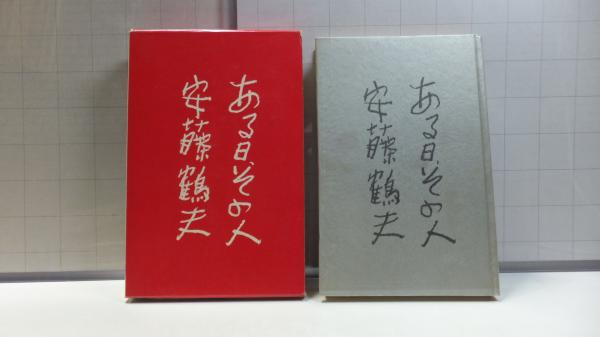 ある日、その人
安藤鶴夫
ある日、その人
安藤鶴夫